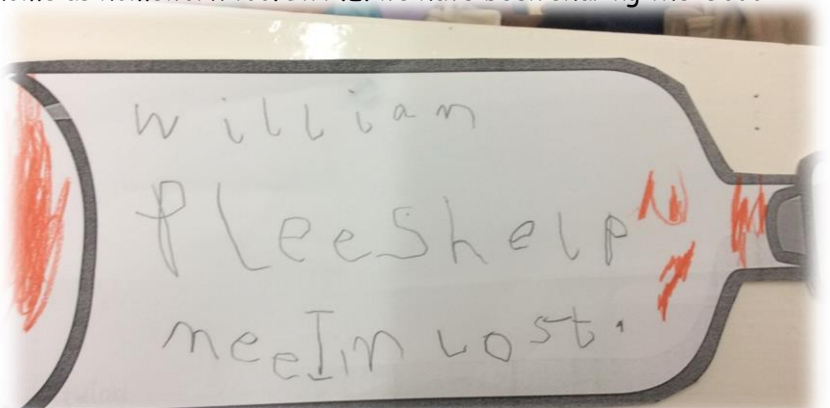 willian
PleeShelp
meeIm Lost.